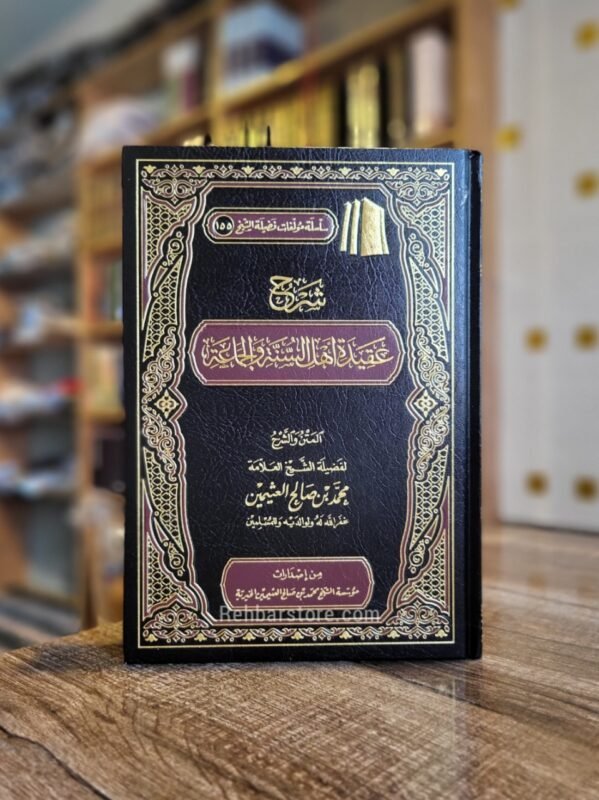 سلسلة مؤلفات فضيلة الشيخ (١٥٥)
شرح
عقيدة أهل السنة والجماعة
المتن والشرح
لفضيلة الشيخ العلامة
محمد بن صالح العثيمين
غفر الله له ولوالديه وللمسلمين
من إصدارات
مؤسسة الشيخ محمد بن صالح العثيمين الخيرية
Rehbarstore.com